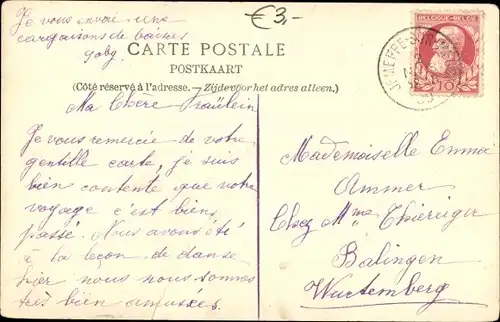 Je vous envoie une
cargaisons de baisers
Gaby.
€3,-
CARTE POSTALE
POSTKAART
(Côté réservé à l'adresse.—Zijde voor het adres alleen.)
BELGIQUE·BELGIË
10
JEMEPPE-SUR-
Ma Chère Fraülein
Je vous remercie de votre
gentille carte, je suis
bien contente que votre
voyage c'est bien
passé. Nous avons été
à la leçon de danse
hier nous nous sommes
très bien amusées.
Mademoiselle Emma
Ammer
Chez Mme Thieriger
Balingen
Wurtemberg